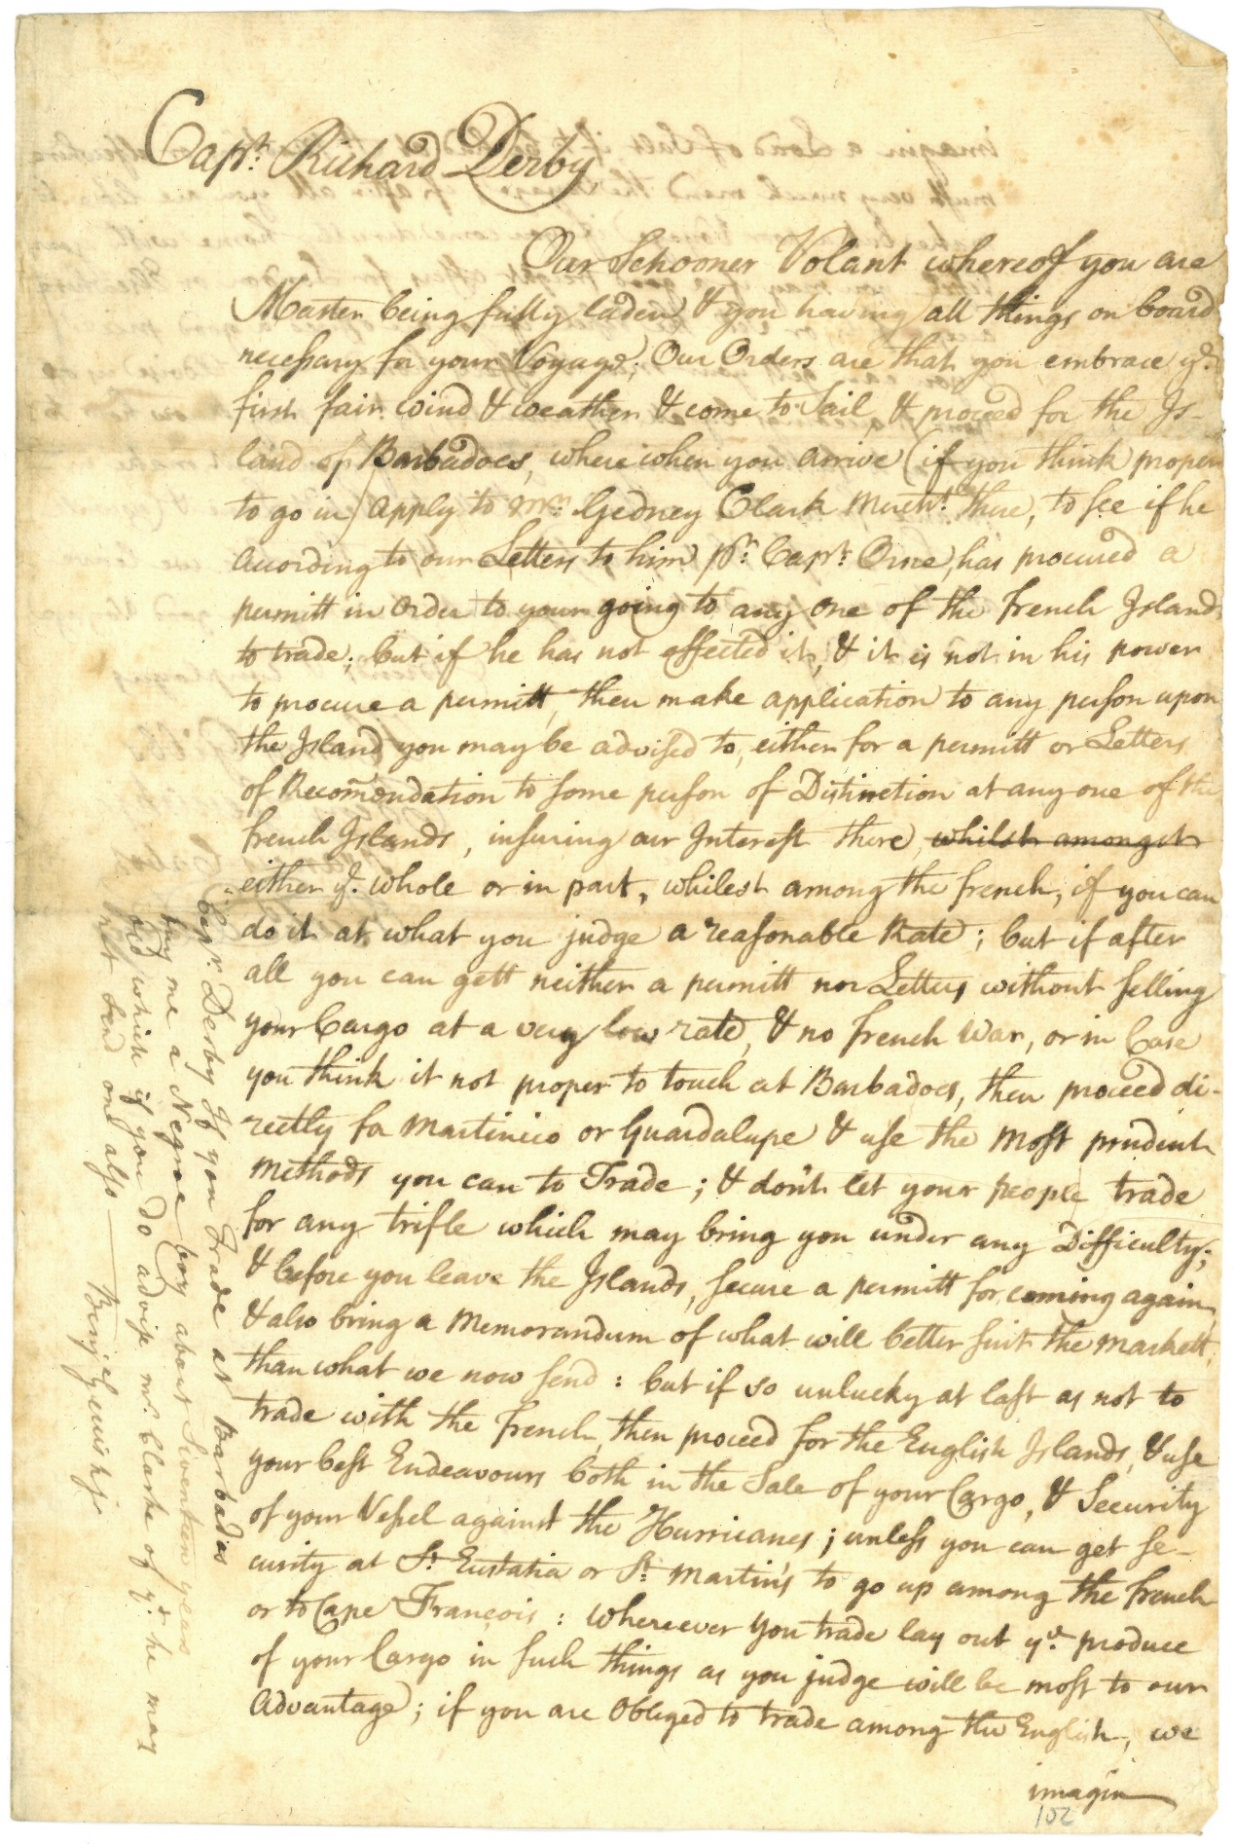 Capt. Richard Derby
Our Schooner Volant whereof you are
Master being fully laden & you having all things on board
necessary for your Voyage; Our Orders are that you embrace ye.
first fair wind & weather & come to Sail, & proceed for the Is-
land of Barbadoes, where when you arrive (if you think proper
to go in) apply to Mr. Gedney Clark Mercht. there, to see if he
acording to our Letters to him pr. Capt. Orne, has procured a
permitt in Order to your going to any one of the french Islands
to trade; but if he has not effected it, & it is not in his power
to procure a permitt, then make application to any person upon
the Island you may be advised to, either for a permitt or Letters
of Recomendation to some person of Distinction at any one of the
french Islands, insuring our Interest there, whilst amongst
either ye. whole or in part, whilest among the french, if you can
do it at what you judge a reasonable Rate; but if after
all you can gett neither a permitt nor Letters without selling
your Cargo at a very low rate, & no french War, or in Case
you think it not proper to touch at Barbadoes, then proceed di-
rectly for Martinico or Guardalupe & use the most prudent
methods you can to Trade; & don't let your people trade
for any trifle which may bring you under any Difficulty;
& before you leave the Islands, secure a permitt for coming again,
& also bring a Memorandum of what will better suit the markett,
than what we now send: but if so unlucky at last as not to
trade with the french, then proceed for the English Islands, & use
your best Endeavours both in the Sale of your Cargo, & Security
of your Vessel against the Hurricanes; unless you can get se-
curity at St. Eustatia or St. Martin's to go up among the french
or to Cape Francois: whereever you trade lay out ye. produce
of your Cargo in such things as you judge will be most to our
Advantage; if you are Obliged to trade among the English, we
imagin
102
Capt. Derby If you Trade at Barbadias
buy me a Negroe boy about Siventeen years
old which if you do advise mr. Clarke of yt. he may
not send one also
Benj. Gerrish jr